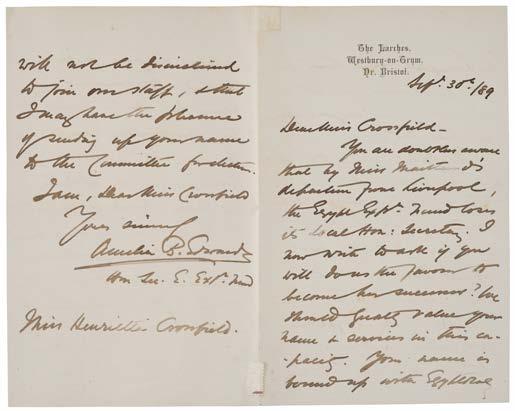 The Larches,
Westbury-on-Trym,
Nr. Bristol.
Sept. 30th /89
Dear Miss Crossfield -
You are doubtless aware
that by Miss
departure from Liverpool,
the Egypt Expn. Fund loses
its local Hon: Secretary. I
now write to ask if you
will do us the favour to
become her successor? We
should greatly value your
name & services in this ca-
-pacity. Your name is
bound up with
will not be disinclined
to join our staff, & that
I may have the pleasure
of sending up your name
to the Committee for election.
I am, Dear Miss Crossfield
Yours sincerely
Amelia B. Edwards
Hon. Sec. E. Expn. Fund
Miss Henrietta Crossfield.